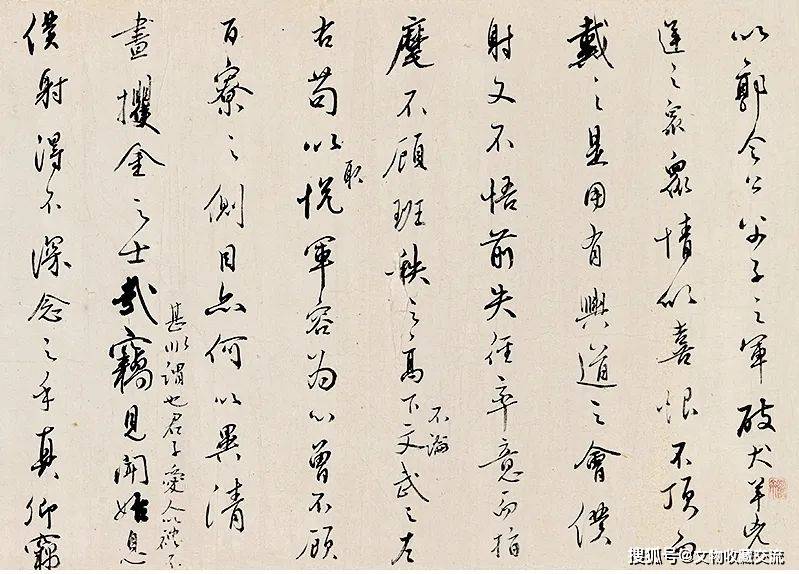 以郭令公父子之軍破犬羊兇
逆之眾眾情欣喜恨不頂而
戴之是用有興道之會僕
射又不悟前失徑率意而指
麾不顧班秩之高下文武之左
不論
右苟以悅軍容為心曾不顧
取
百寮之側目亦何以異清
晝攫金之士哉竊見聞姑息
甚非謂也君子愛人以禮不
僕射得不深念之乎真卿竊
搜狐号@文物收藏交流